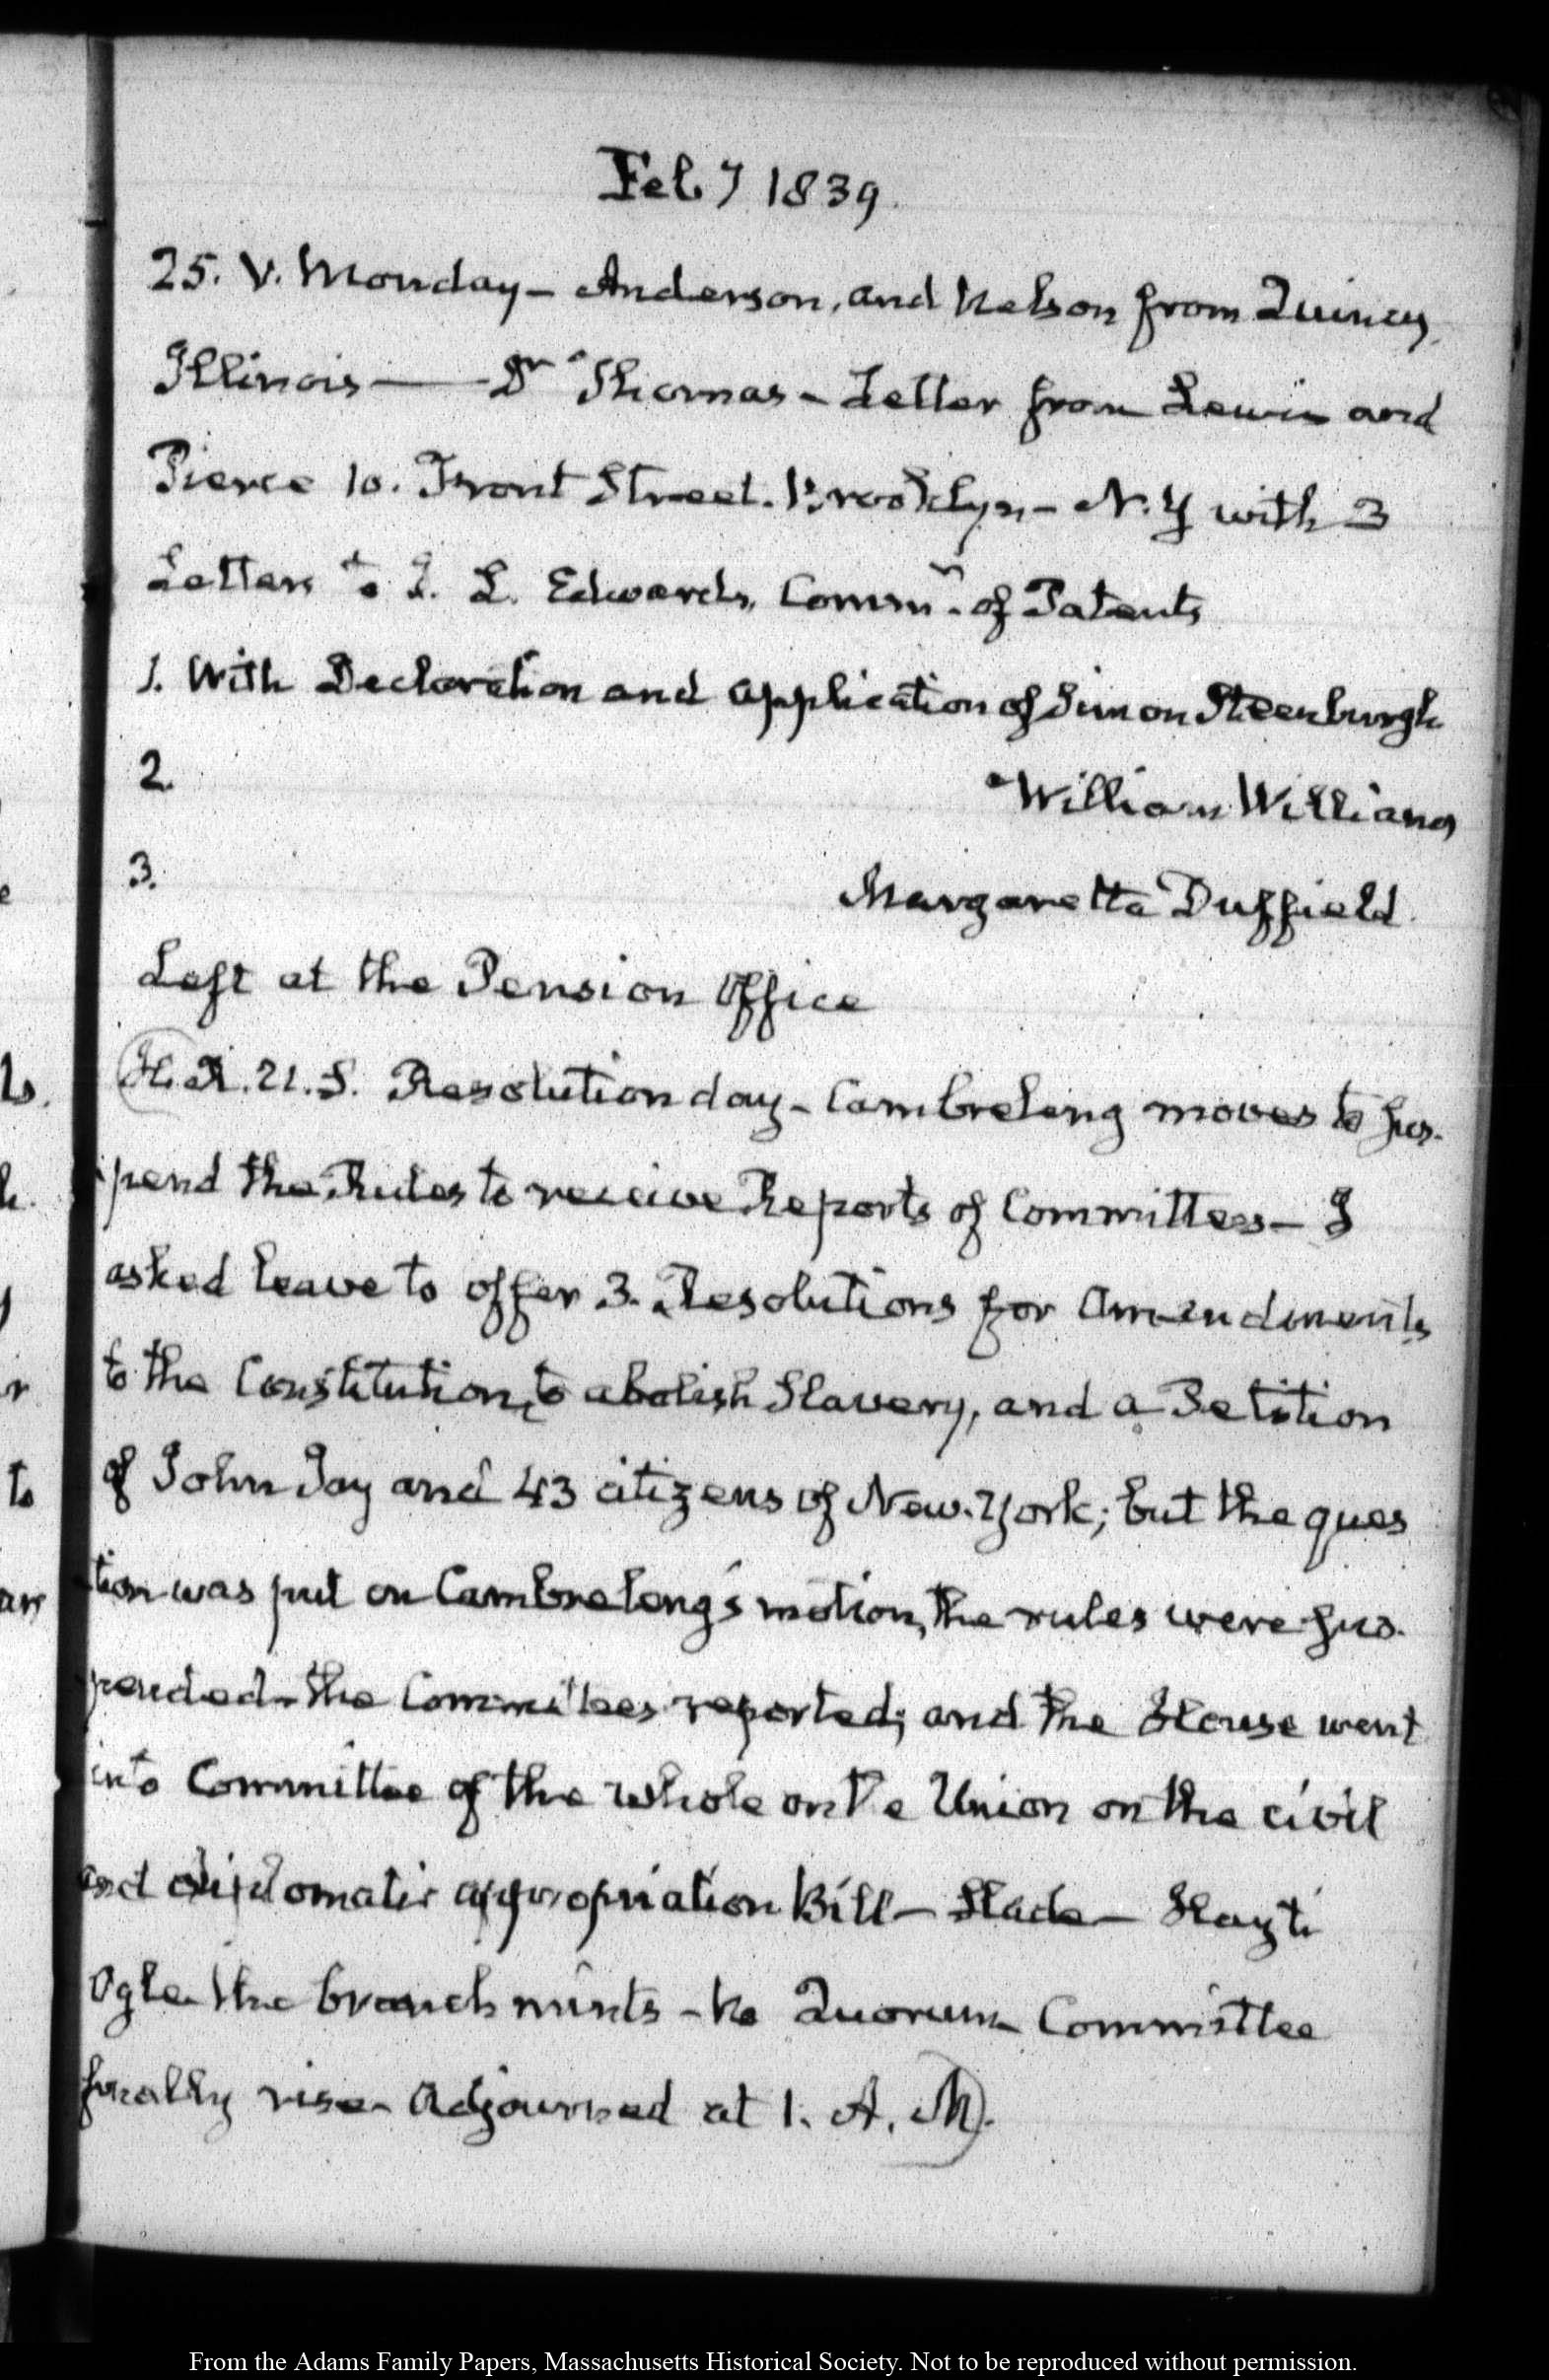 Feb 7 1839
25. V. Monday – Anderson, and Nelson from Quincy
Illinois —— Dr Thomas – Letter from Lewis and
Pierce 10. Front Street. Brooklyn – N.Y with 3
Letters to J. L. Edwards, Commr. of Patents
1. With Declaration and application of Simon Steenburgh
2. William Williams
3. Margaretta Duffield.
Left at the Pension Office
H.R. 21. S. Resolution day – Cambreleng moves to sus-
pend the Rules to receive Reports of Committees – I
asked leave to offer 3. Resolutions for Amendments
to the Constitution, to abolish Slavery, and a Petition
of John Jay and 43 citizens of New-York; but the ques
tion was put on Cambreleng's motion, the rules were sus-
pended – the Committees reported; and the House went
into Committee of the whole on the Union on the civil
and diplomatic appropriation Bill – Slade – Hayti
Ogle the branch mints – No Quorum Committee
finally rise – Adjourned at 1. A. M).
ls.
h.
r
to
an
From the Adams Family Papers, Massachusetts Historical Society. Not to be reproduced without permission.